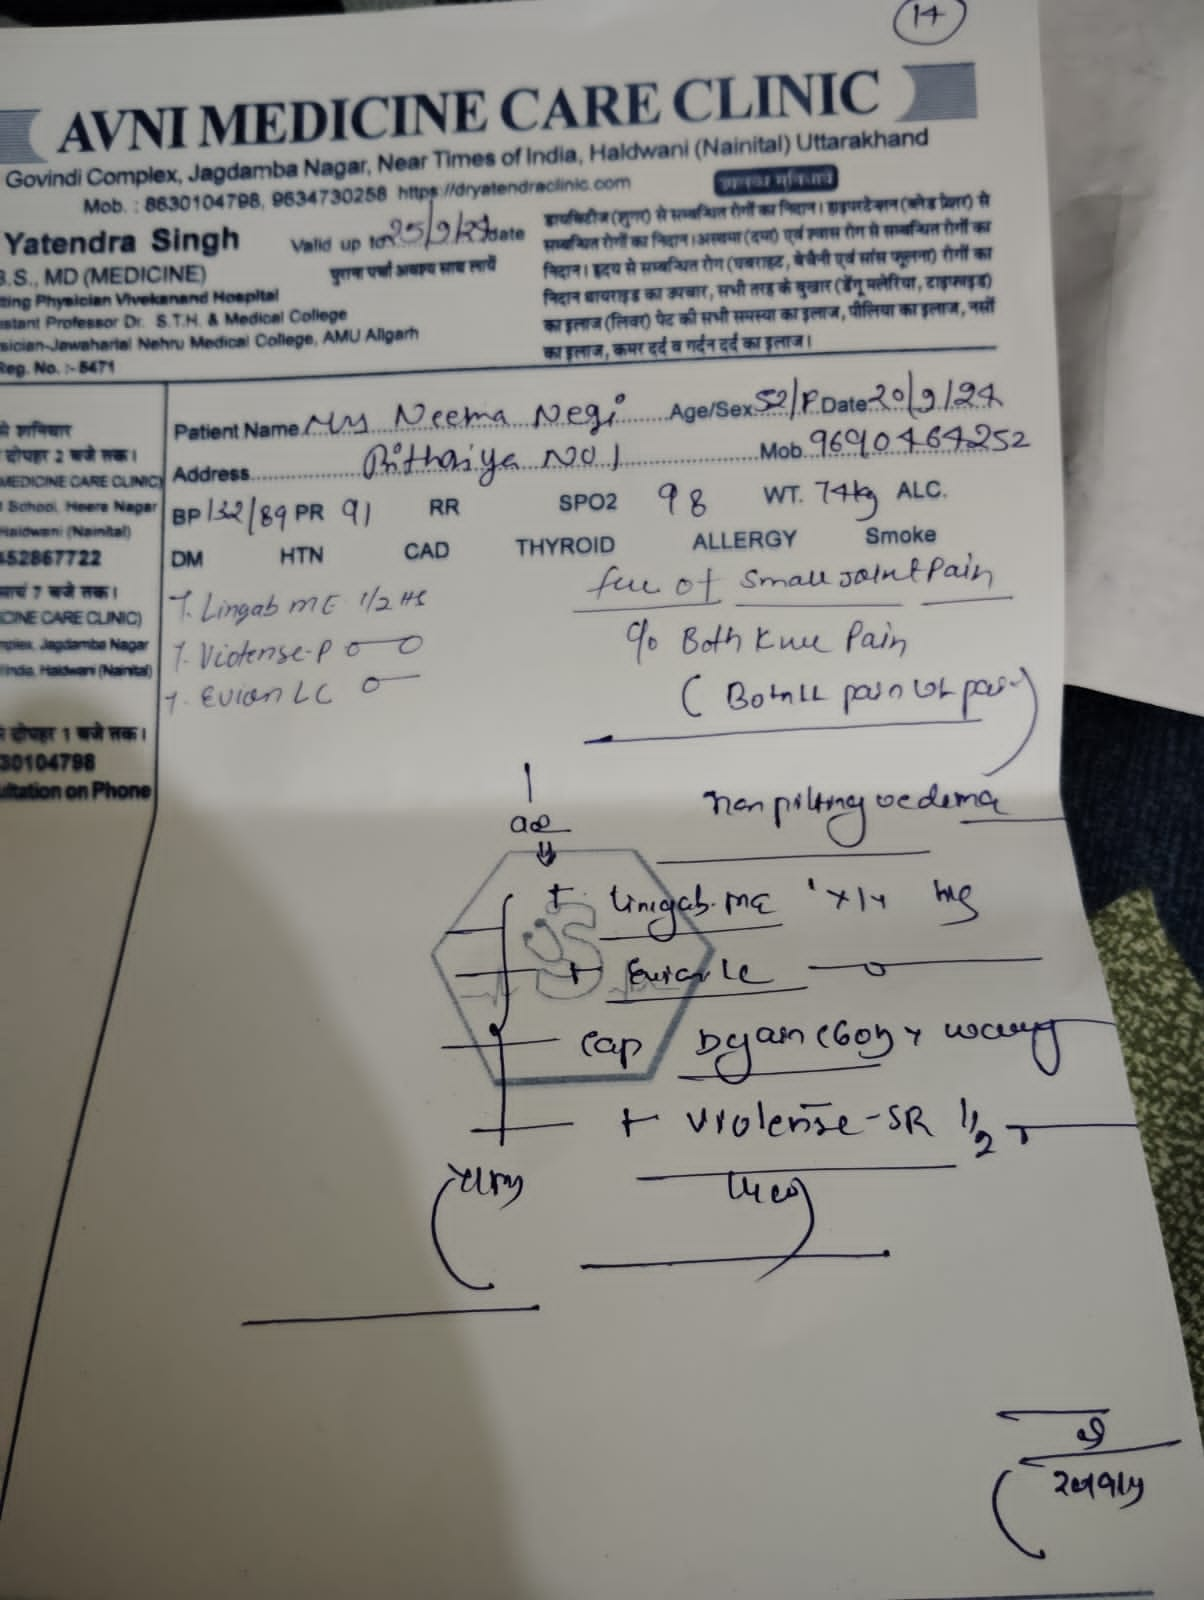 14
AVNI MEDICINE CARE CLINIC
Govindi Complex, Jagdamba Nagar, Near Times of India, Haldwani (Nainital) Uttarakhand
Mob. : 8630104798, 9634730258 https://dryatendraclinic.com
उपलब्ध सुविधायें
Yatendra Singh
Valid up to 25/9/24 date
पुराना पर्चा अवश्य साथ लायें
B.S., MD (MEDICINE)
ting Physician Vivekanand Hospital
istant Professor Dr. S.T.H. & Medical College
sician-Jawaharlal Nehru Medical College, AMU Aligarh
Reg. No. :- 5471
डायबिटीज (शुगर) से सम्बन्धित रोगों का निदान। हाइपरटेन्शन (ब्लड प्रेशर) से
सम्बन्धित रोगों का निदान। अस्थमा (दमा) एवं श्वास रोग से सम्बन्धित रोगों का
निदान। ह्रदय से सम्बन्धित रोग (घबराहट, बेचैनी एवं सांस फूलना) रोगों का
निदान थायराइड का उपचार, सभी तरह के बुखार (डेंगू मलेरिया, टाइफाइड)
का इलाज (लिवर) पेट की सभी समस्या का इलाज, पीलिया का इलाज, नसों
का इलाज, कमर दर्द व गर्दन दर्द का इलाज।
से शनिवार
दोपहर 2 बजे तक।
MEDICINE CARE CLINIC)
School, Heera Nagar
Haldwani (Nainital)
452867722
सायं 7 बजे तक।
ICINE CARE CLINIC)
mplex, Jagdamba Nagar
India, Haldwani (Nainital)
दोपहर 1 बजे तक।
30104798
ultation on Phone
Patient Name Mrs Neema Negi Age/Sex 52/F Date 20/9/24
Address Pithoriya No 1 Mob. 9690464252
BP 132/89 PR 91 RR SPO2 98 WT. 74kg ALC.
DM HTN CAD THYROID ALLERGY Smoke
T. Lingab ME 1/2 HS
T. Viotense-P
T. Evion LC
of Small Joint Pain
c/o Both Knee Pain
( Both LL pain
non pitting oedema
Lingab-ME
Evion LC
Cap
Violense-SR 1/2